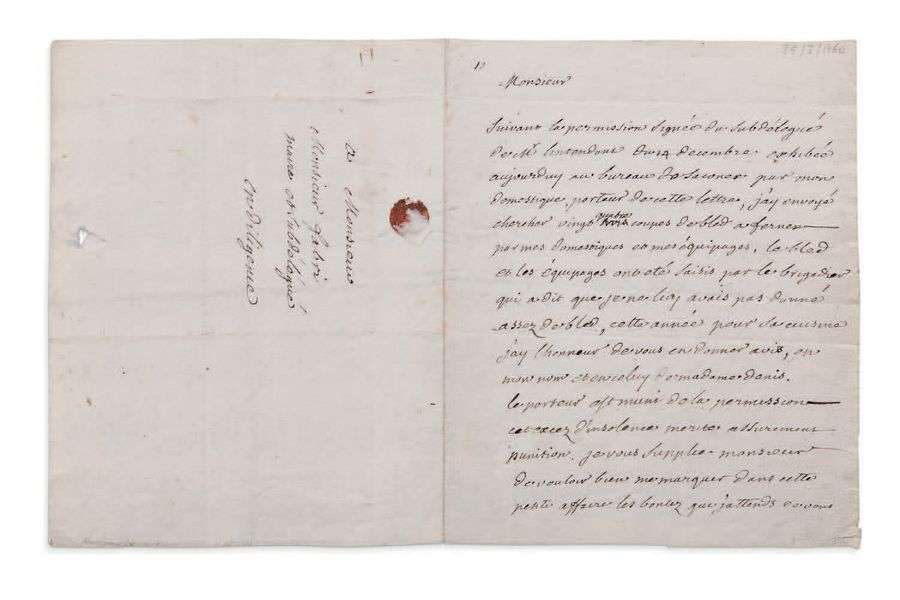 a Monsieur
Monsieur fabri
maire et subdélégué
en diligence
Monsieur
Suivant la permission signée du subdélégué
de Mr lintendant du 14 decembre exhibée
aujourduy au bureau de saconex par mon
domestique porteur de cette lettre, j'ay envoyé
chercher vingt quatre coupes de bled a ferney
par mes domestiques et mes équipages. le bled
et les équipages ont été saisis par le brigadier
qui a dit que je ne luy avais pas donné
assez de bled, cette année pour sa cuisine
j'ay l'honneur de vous en donner avis, en
mon nom et en celuy de madame denis.
le porteur est muni de la permission
cet excez d'insolence merite assurement
punition. je vous supplie monsieur
de vouloir bien me marquer dans cette
petite affaire les bontez que j'attends de vous